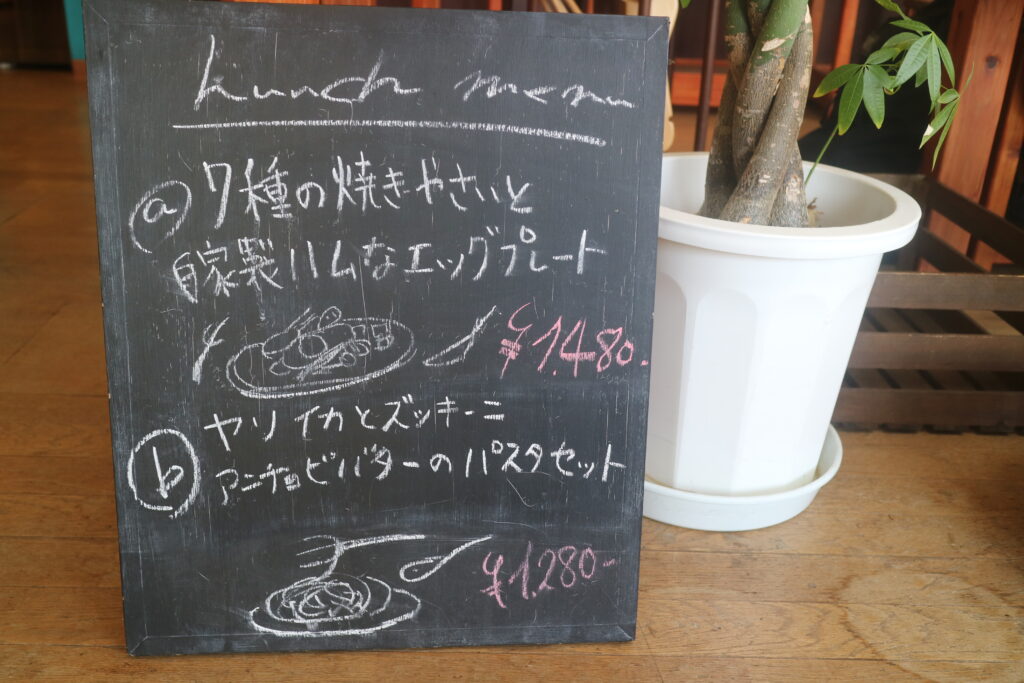 Lunch menu
ⓐ 7種の焼きやさいと
自家製ハムなエッグプレート
¥1,480-
ヤリイカとズッキーニ
ⓑ アンチョビバターのパスタセット
¥1,280-